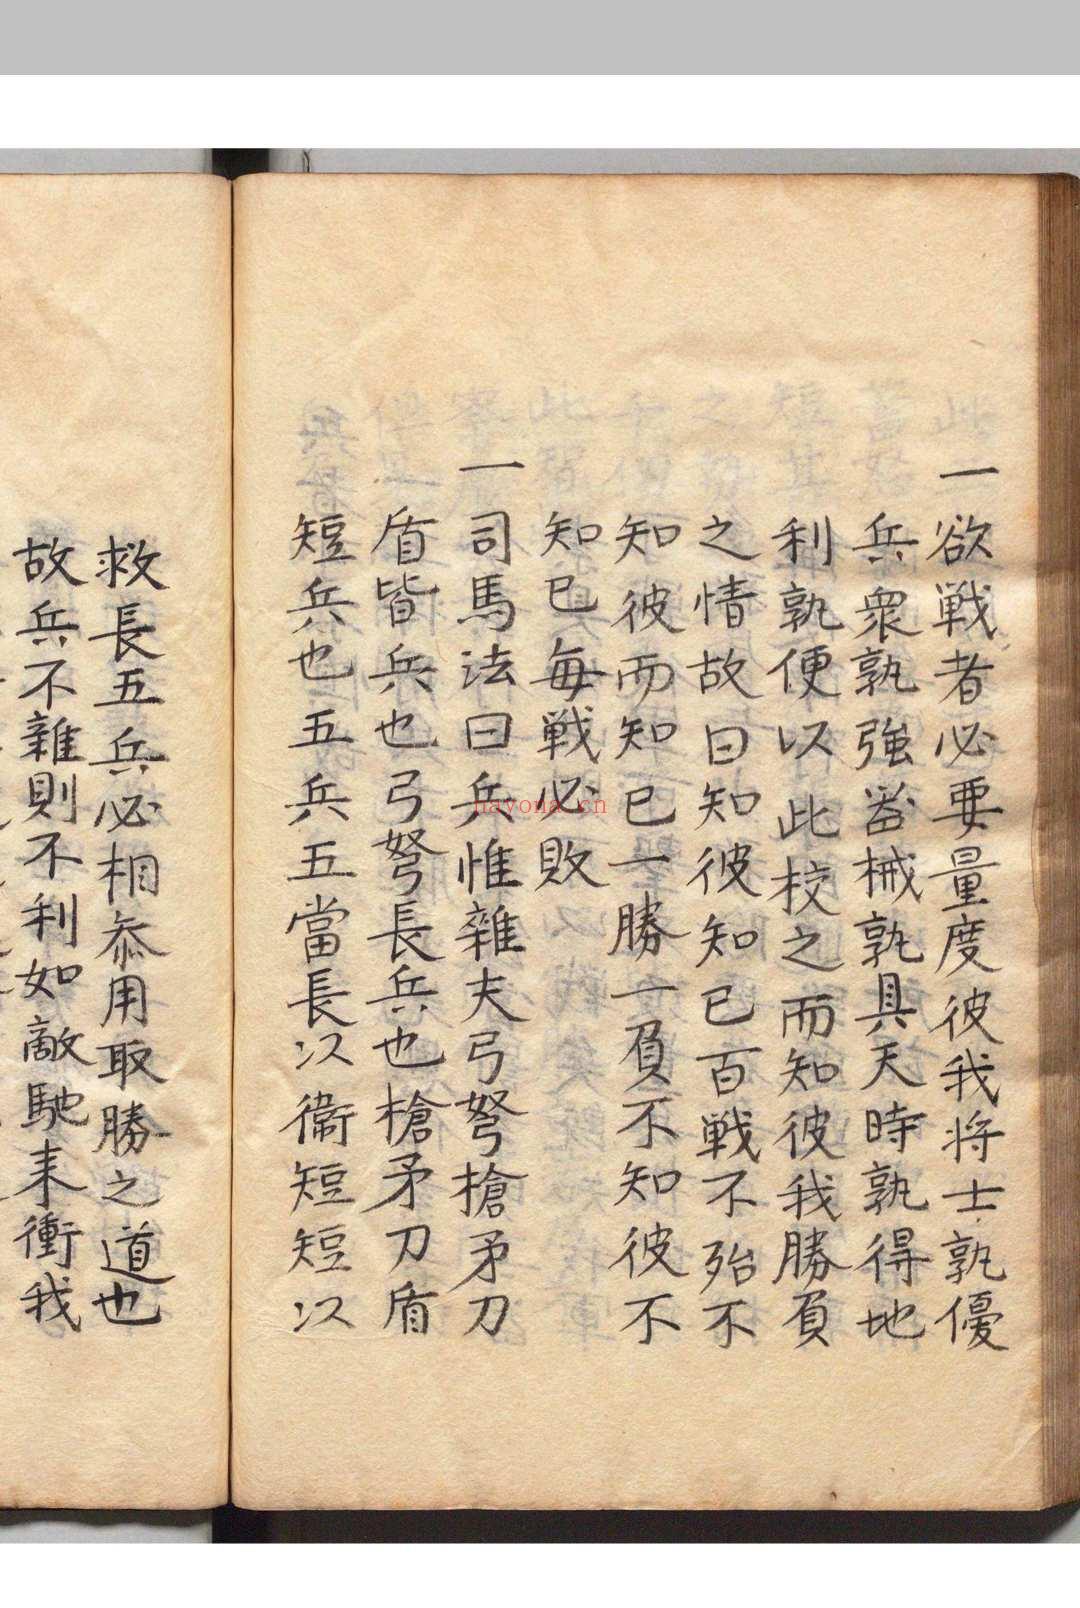 一欲戦者必要量度彼我将士孰優
兵衆孰強器械孰具天時孰得地
利孰便以此校之而知彼我勝負
之情故曰知彼知已百戦不殆不
知彼而知已一勝一負不知彼不
知已每戦必敗
一司馬法曰兵惟雜夫弓弩槍矛刀
盾皆兵也弓弩長兵也槍矛刀盾
短兵也五兵五當長以衞短短以
救長五兵必相叅用取勝之道也
故兵不雜則不利如敵馳来衝我
hayona.cn